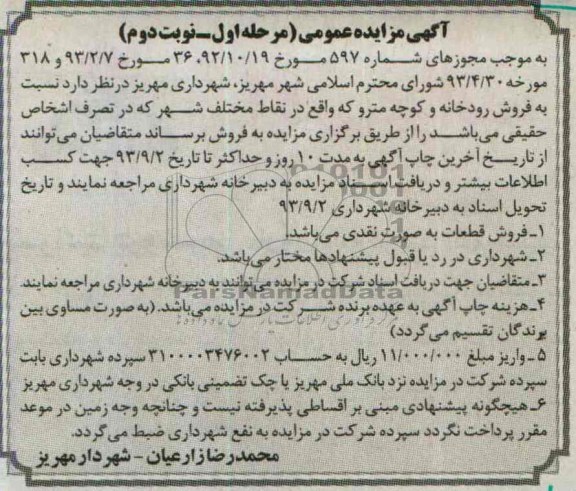 آگهی مزایده عمومی (مرحله اول ـ نوبت دوم)
به موجب مجوزهای شماره ۵۹۷ مورخ ۹۲/۱۰/۱۹، ۳۶ مورخ ۹۳/۲/۷ و ۳۱۸
مورخه ۹۳/۴/۳۰ شورای محترم اسلامی شهر مهریز، شهرداری مهریز درنظر دارد نسبت
به فروش رودخانه و کوچه مترو که واقع در نقاط مختلف شهر که در تصرف اشخاص
حقیقی می‌باشد را از طریق برگزاری مزایده به فروش برساند متقاضیان می‌توانند
از تاریخ آخرین چاپ آگهی به مدت ۱۰ روز و حداکثر تا تاریخ ۹۳/۹/۲ جهت کسب
اطلاعات بیشتر و دریافت اسناد مزایده به دبیرخانه شهرداری مراجعه نمایند و تاریخ
تحویل اسناد به دبیرخانه شهرداری ۹۳/۹/۲
۱ـ فروش قطعات به صورت نقدی می‌باشد.
۲ـ شهرداری در رد یا قبول پیشنهادها مختار می‌باشد.
۳ـ متقاضیان جهت دریافت اسناد شرکت در مزایده می‌توانند به دبیرخانه شهرداری مراجعه نمایند.
ParsNamadData
۴ـ هزینه چاپ آگهی به عهده برنده شرکت در مزایده می‌باشد. (به صورت مساوی بین
برندگان تقسیم می‌گردد)
۵ ـ واریز مبلغ ۱۱/۰۰۰/۰۰۰ ریال به حساب ۳۱۰۰۰۰۳۴۷۶۰۰۲ سپرده شهرداری بابت
سپرده شرکت در مزایده نزد بانک ملی مهریز یا چک تضمینی بانکی در وجه شهرداری مهریز
۶ـ هیچگونه پیشنهادی مبنی بر اقساطی پذیرفته نیست و چنانچه وجه زمین در موعد
مقرر پرداخت نگردد سپرده شرکت در مزایده به نفع شهرداری ضبط می‌گردد.
محمدرضا زارعیان - شهردار مهریز